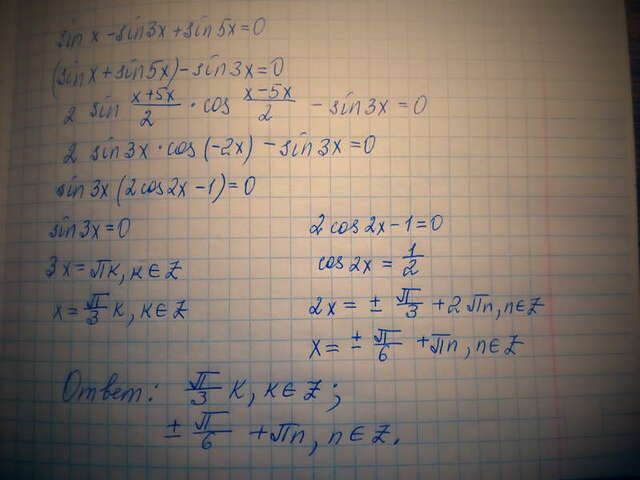 sin x - sin 3x + sin 5x = 0
(sin x + sin 5x) - sin 3x = 0
2 sin (x+5x)/2 · cos (x-5x)/2 - sin 3x = 0
2 sin 3x · cos (-2x) - sin 3x = 0
sin 3x (2 cos 2x - 1) = 0
sin 3x = 0
3x = πk, k ∈ Z
x = π/3 k, k ∈ Z
2 cos 2x - 1 = 0
cos 2x = 1/2
2x = ± π/3 + 2πn, n ∈ Z
x = ± π/6 + πn, n ∈ Z
Ответ: π/3 k, k ∈ Z;
± π/6 + πn, n ∈ Z.